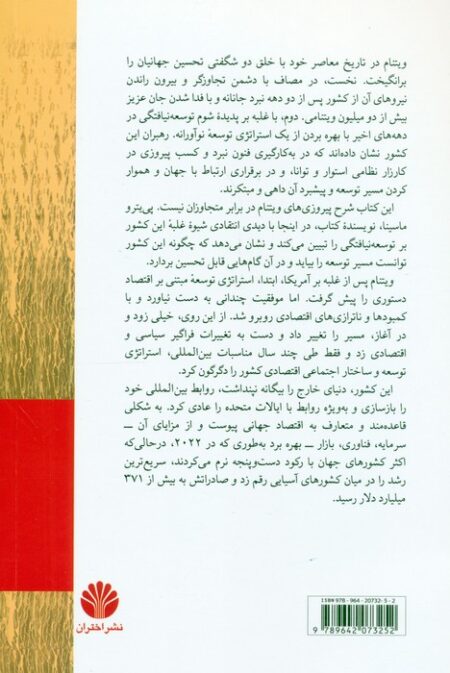 ویتنام در تاریخ معاصر خود با خلق دو شگفتی تحسین جهانیان را
برانگیخت. نخست، در مصاف با دشمن تجاوزگر و بیرون راندن
نیروهای آن از کشور پس از دو دهه نبرد جانانه و با فدا شدن جان عزیز
بیش از دو میلیون ویتنامی. دوم، با غلبه بر پدیدهٔ شوم توسعه‌نیافتگی در
دهه‌های اخیر با بهره بردن از یک استراتژی توسعهٔ نوآورانه. رهبران این
کشور نشان داده‌اند که در به‌کارگیری فنون نبرد و کسب پیروزی در
کارزار نظامی استوار و توانا، و در برقراری ارتباط با جهان و هموار
کردن مسیر توسعه و پیشبرد آن داهی و مبتکرند.
این کتاب شرح پیروزی‌های ویتنام در برابر متجاوزان نیست. پی‌یترو
ماسینا، نویسندهٔ کتاب، در اینجا با دیدی انتقادی شیوهٔ غلبهٔ این کشور
بر توسعه‌نیافتگی را تبیین می‌کند و نشان می‌دهد که چگونه این کشور
توانست مسیر توسعه را بیابد و در آن گام‌هایی قابل تحسین بردارد.
ویتنام پس از غلبه بر آمریکا، ابتدا، استراتژی توسعهٔ مبتنی بر اقتصاد
دستوری را پیش گرفت. اما موفقیت چندانی به دست نیاورد و با
کمبودها و ناترازی‌های اقتصادی روبرو شد. از این روی، خیلی زود و
در آغاز، مسیر را تغییر داد و دست به تغییرات فراگیر سیاسی و
اقتصادی زد و فقط طی چند سال مناسبات بین‌المللی، استراتژی
توسعه و ساختار اجتماعی اقتصادی کشور را دگرگون کرد.
این کشور، دنیای خارج را بیگانه نپنداشت، روابط بین‌المللی خود
را بازسازی و به‌ویژه روابط با ایالات متحده را عادی کرد. به شکلی
قاعده‌مند و متعارف به اقتصاد جهانی پیوست و از مزایای آن ــ
سرمایه، فناوری، بازار ــ بهره برد به‌طوری که در ۲۰۲۲، درحالی‌که
اکثر کشورهای جهان با رکود دست‌وپنجه نرم می‌کردند، سریع‌ترین
رشد را در میان کشورهای آسیایی رقم زد و صادراتش به بیش از ۳۷۱
میلیارد دلار رسید.
نشر اختران
ISBN 978-964-20732-5-2
9 789642 073252